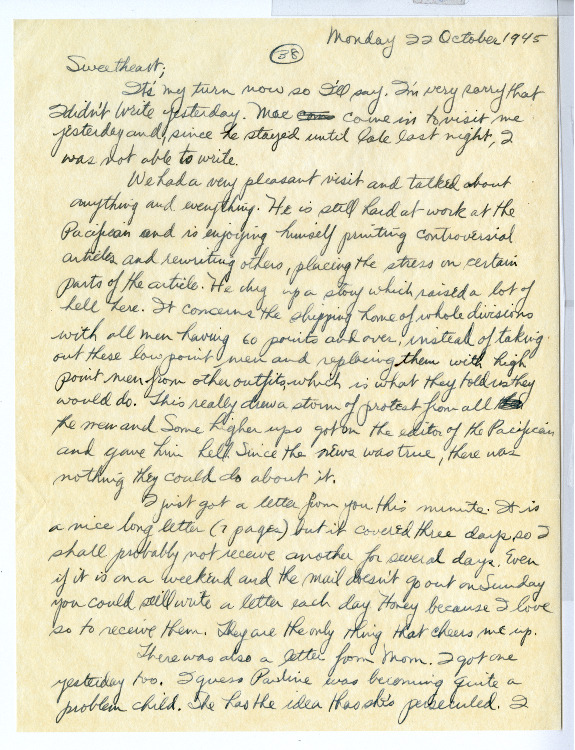 Monday 22 October 1945
38
Sweetheart;
It's my turn now so I'll say. I'm very sorry that
I didn't write yesterday. Moe came in to visit me
yesterday and, since he stayed until late last night, I
was not able to write.
We had a very pleasant visit and talked about
anything and everything. He is still hard at work at the
Pacifican and is enjoying himself printing controversial
articles and rewriting others, placing the stress on certain
parts of the article. He dug up a story which raised a lot of
hell here. It concerns the shipping home of whole divisions
with all men having 60 points and over, instead of taking
out these low point men and replacing them with high
point men from other outfits, which is what they told us they
would do. This really drew a storm of protest from all
the men and some higher ups got on the editor of the Pacifican
and gave him hell. Since the news was true, there was
nothing they could do about it.
I just got a letter from you this minute. It is
a nice long letter (7 pages) but it covered three days, so I
shall probably not receive another for several days. Even
if it is on a weekend and the mail doesn't go out on Sunday
you could still write a letter each day Honey because I love
so to receive them. They are the only thing that cheers me up.
There was also a letter from Mom. I got one
yesterday too. I guess Pauline was becoming quite a
problem child. She has the idea that she's persecuted. I